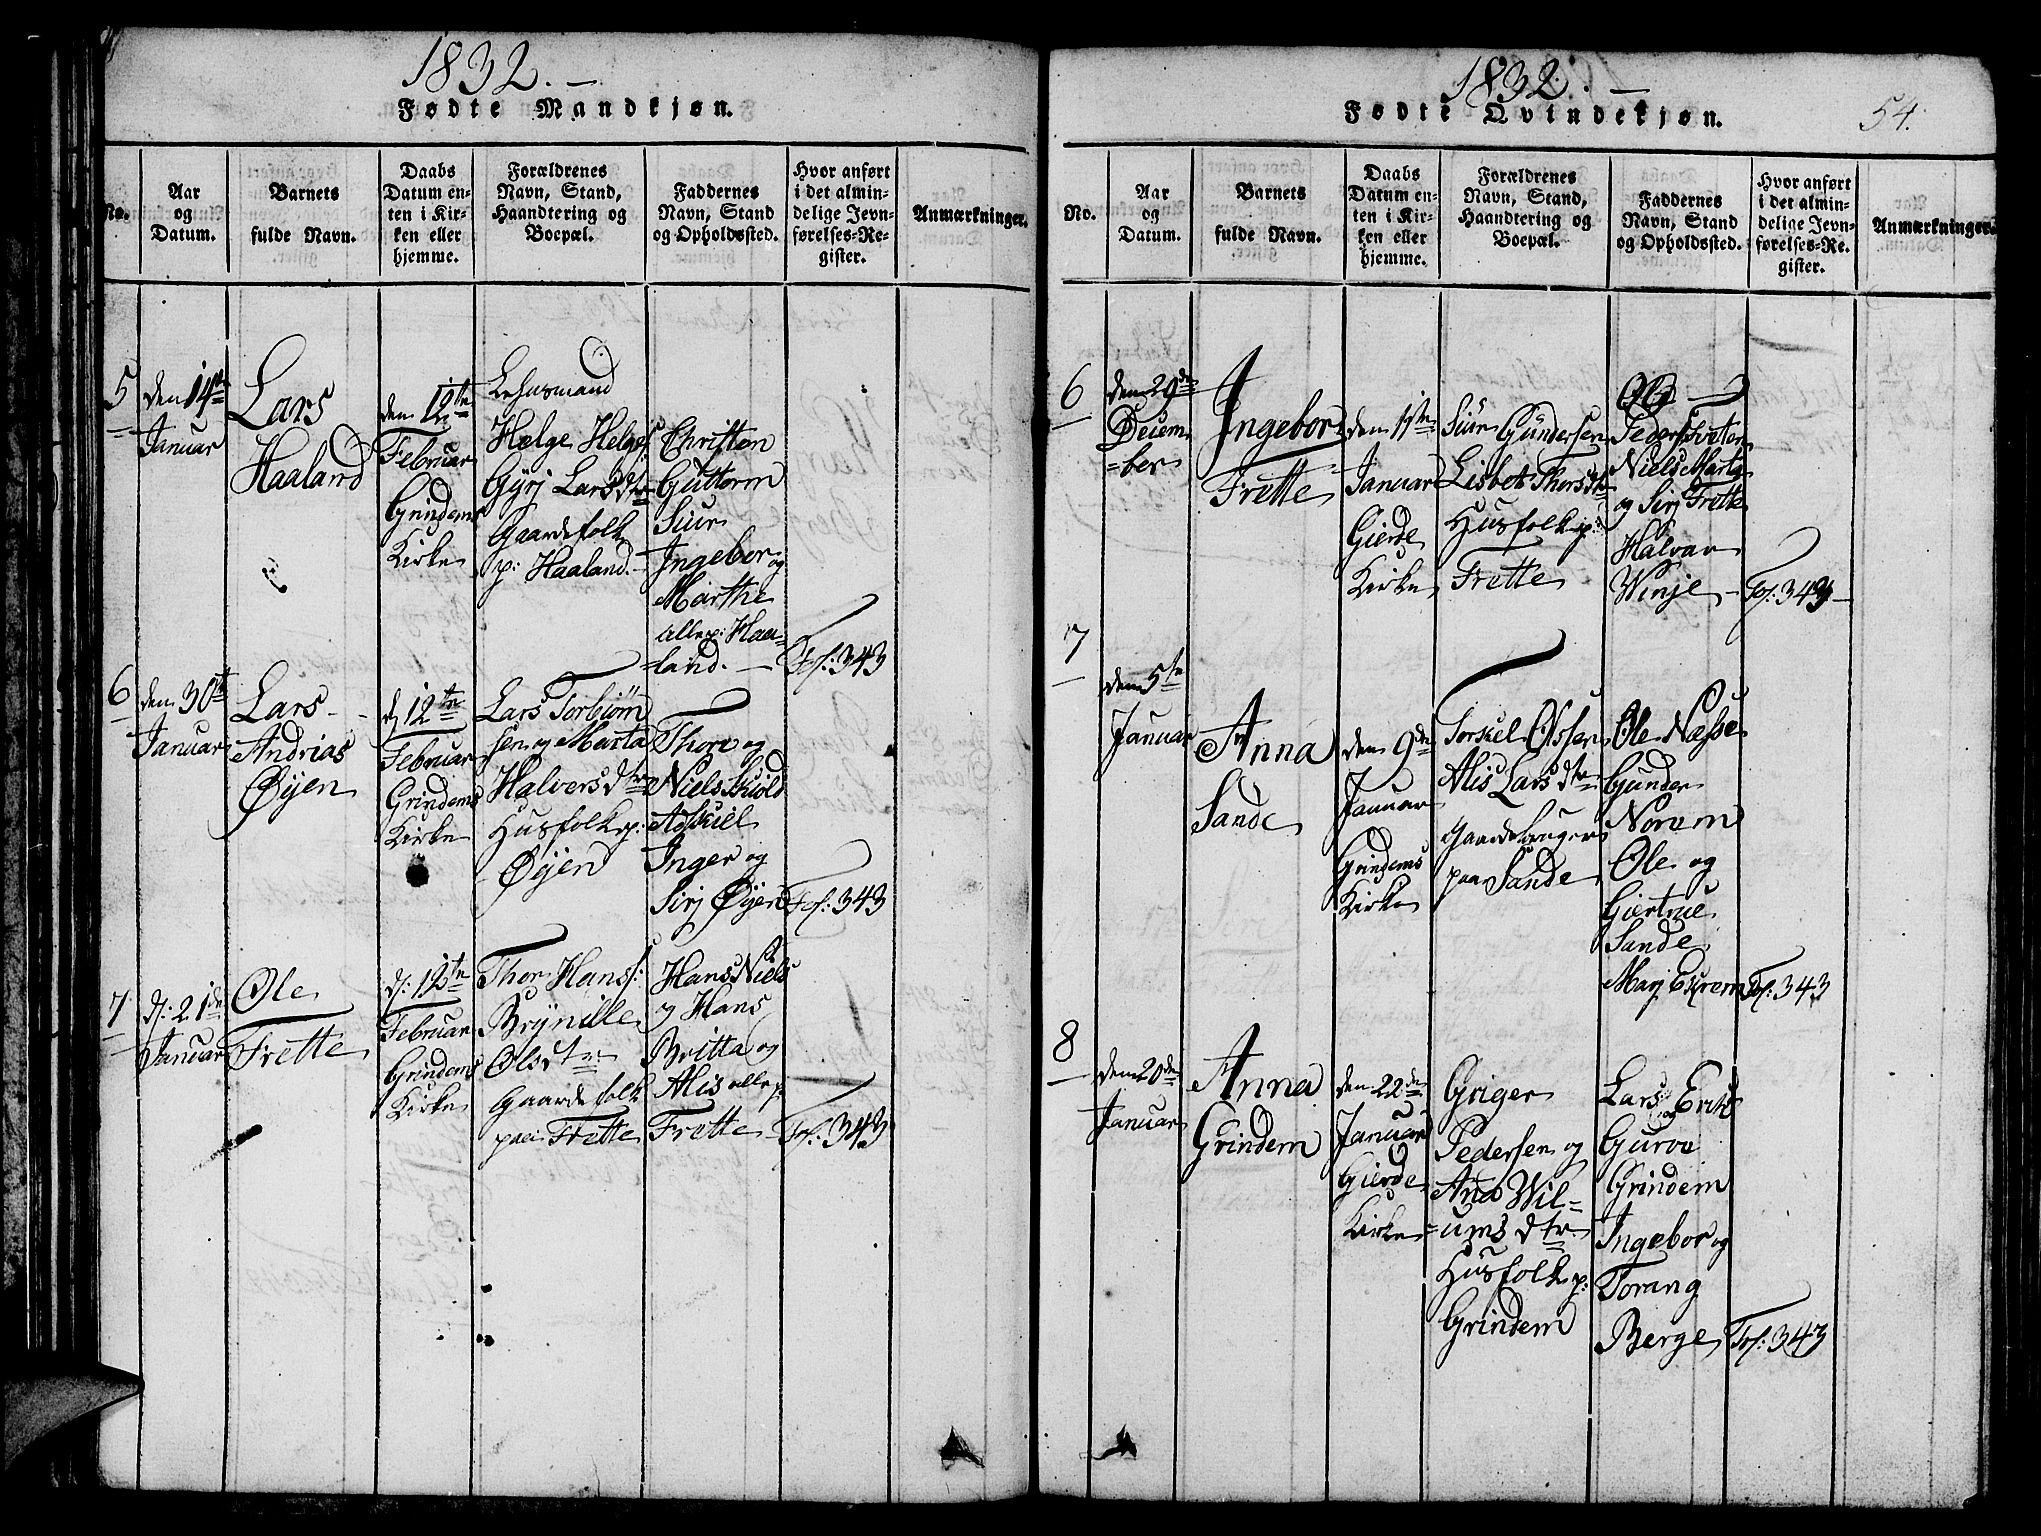 1832. —
Fødte Mandkjøn.
No.
Aar
og
Datum.
Barnets
fulde Navn.
Daabs
Datum en-
ten i Kir-
ken eller
hjemme.
Forældrenes
Navn, Stand,
Haandtering og
Boepæl.
Faddernes
Navn, Stand
og Opholdssted.
Hvor anført
i det almin-
delige Jevn-
førelses-Re-
gister.
Anmærkninger.
5
den 14de
Januar
Lars
Haaland
den 12te
Februar
Grindems
Kirke
Helge Helges:
Gyrj Larsdtr
Gaardefolk
p: Haaland.
Christen
Guttorm
Siur
Ingebor og
Marthe
alle p: Haa-
land. —
Fol: 343
6
den 30te
Januar
Lars
Andrias
Øyen
d 12te
Februar
Grindems
Kirke
Lars Torbiørn
sen og Marta
Halversdtr
Husfolk p:
Øyen
Thore og
Niels Skiold
Aoskiel
Inger og
Sirj Øyen
Fol: 343
7
d: 21de
Januar
Ole
Frette
d: 12te
Februar
Grindems
Kirke
Thor Hans:
Brynille
Olsdtr
Gaardefolk
paa Frette
Hans Niels
og Hans
Britta og
Alis alle p:
Frette
Fol: 343
1832. —
Fødte Qvindekjøn.
54.
No.
Aar
og
Datum.
Barnets
fulde Navn.
Daabs
Datum en-
ten i Kir-
ken eller
hjemme.
Forældrenes
Navn, Stand,
Haandtering og
Boepæl.
Faddernes
Navn, Stand
og Opholdssted.
Hvor anført
i det almin-
delige Jevn-
førelses-Re-
gister.
Anmærkninger.
6
den 29de
Decem
=ber
Ingebor
Frette
den 1ste
Januar
Gierde
Kirke
Siur Gundersen
Lisbet Thorsdtr
Husfolk p:
Frette
Niels Marta
og Sirj Frette
Halvar
Winje
Fol: 343
7
den 5te
Januar
Anna
Sande
den 9de
Januar
Grindems
Kirke
Torskel Olssen
Alis Larsdtr
Gaardbruger
paa Sande
Ole Næsse
Gunder
Norem
Ole og
Giertrue
Sande
Marj Eqrem
Fol: 343
8
den 20de
Januar
Anna
Grindem
den 22de
Januar
Gierde
Kirke
Griger
Pedersen og
Ana Wil-
=umsdtr
Husfolk p:
Grindem
Lars Erik
og
Gurva
Grindem
Ingebor og
Torang
Berge
Fol: 343